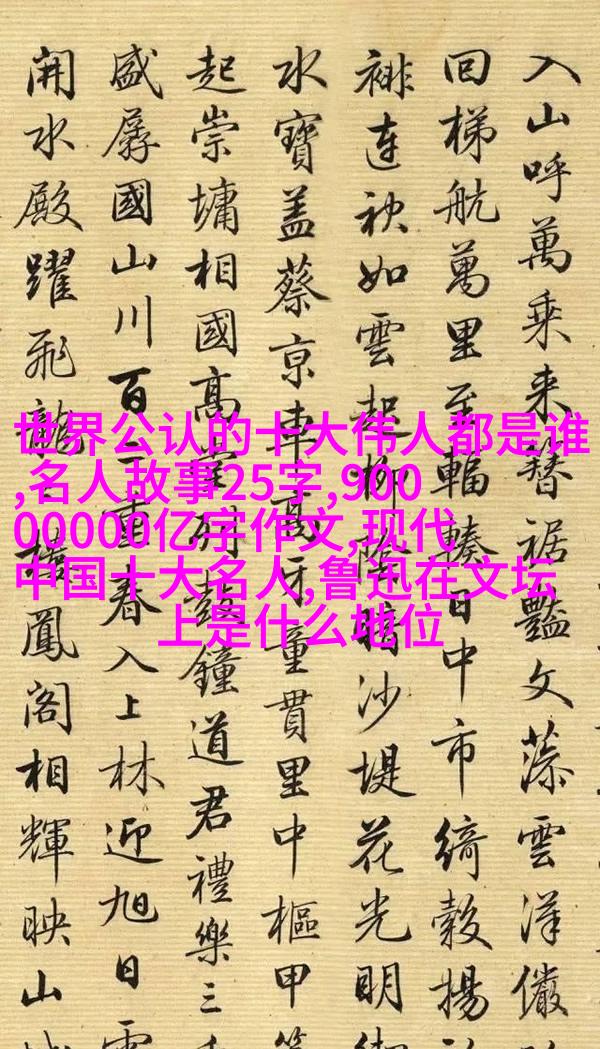 世界公认的十大伟人都是谁
,名人故事25字,900
00000亿字作文,现代
中国十大名人,鲁迅在文坛
上是什么地位
入山呼萬乘来簪裾豔文藻雲洋儼
回梯航萬里至輻輳日中市綺縠揚
連袂如雲起柳陰沙堤花光明
水寶盖蔡京車高牙童貫里中樞甲
起崇墉相國高堂列鼓鐘道君禮樂三
盛孱國山川百二重春入上林迎旭日雲
開水殿躍飛龍樓鳳閣相輝映山